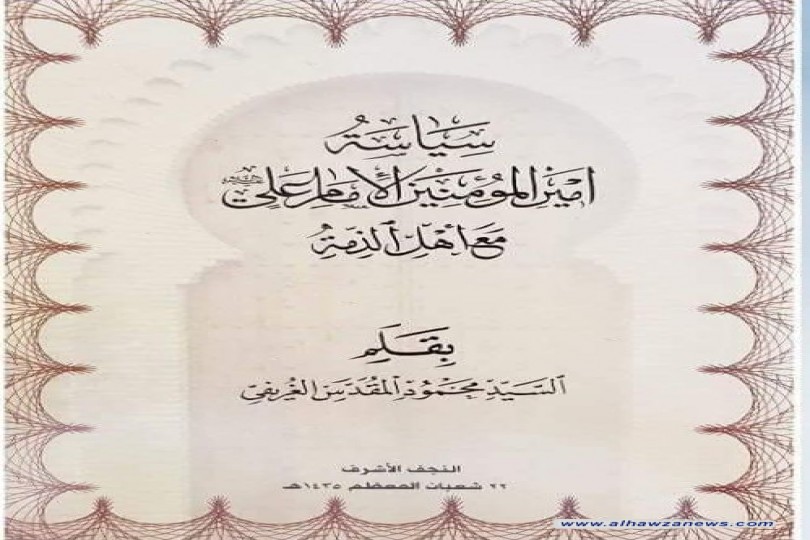 سِيَاسَةُ
أمير المؤمنين الإمام علي
مَعَ أهل الذمة
بِقَلَمِ
السيد محمود المقدس الغريفي
النجف الأشرف
٢٢ شعبان المعظم ١٤٣٥هـ
www.alhawzanews.com